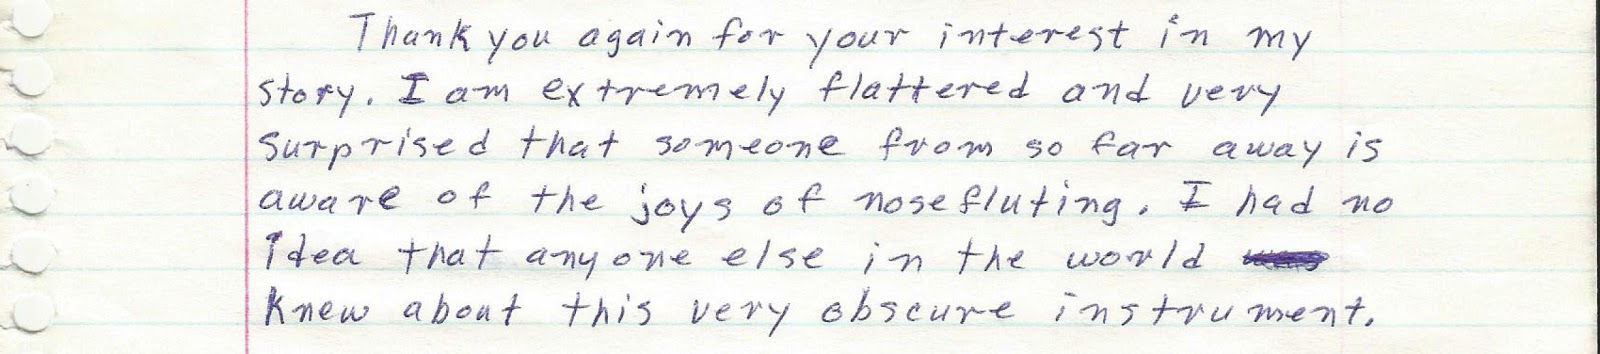 Thank you again for your interest in my
story. I am extremely flattered and very
surprised that someone from so far away is
aware of the joys of nosefluting. I had no
idea that anyone else in the world
knew about this very obscure instrument.